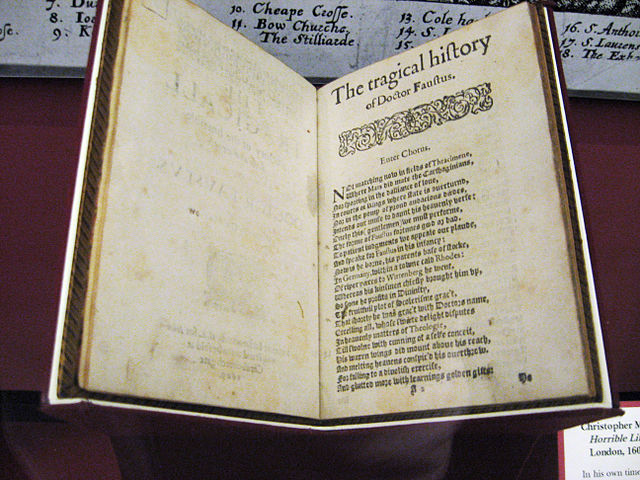 7. Du
8. Ioa
9: K
10. Cheape Crosse.
11. Bow Churche,
The Stilliarde
13. Cole ha
14. S.
15.
16. S. Anthon
17. S. Lauren
18. The Exh
The tragical history
of Doctor Faustus.
Enter Chorus.
NOt marching now in fields of Thracimene,
Where Mars did mate the Carthaginians,
Nor sporting in the dalliance of loue,
In courts of Kings where state is ouerturnd,
Nor in the pomp of prowd audacious deedes,
Intends our Muse to daunt his heauenly verse:
Onely this (Gentlemen) we must performe,
The forme of Faustus fortunes good or bad.
To patient Judgements we appeale our plaude,
And speake for Faustus in his infancy:
Now is he borne, his parents base of stocke,
In Germany, within a towne calld Rhodes:
Of riper yeeres to Wittenberg he went,
Whereas his kinsmen chiefly brought him vp,
So soone he profits in Diuinitie,
The fruitfull plot of Scholerisme grac't,
That shortly he was grac't with Doctors name,
Excelling all, whose sweete delight disputes
In heauenly matters of Theologie,
Till swolne with cunning of a selfe conceit,
His waxen wings did mount aboue his reach,
And melting heauens conspir'd his ouerthrow.
For falling to a diuelish exercise,
And glutted more with learnings golden gifts:
A 2
He
Christopher M
Horrible Li
London, 160
In his own time